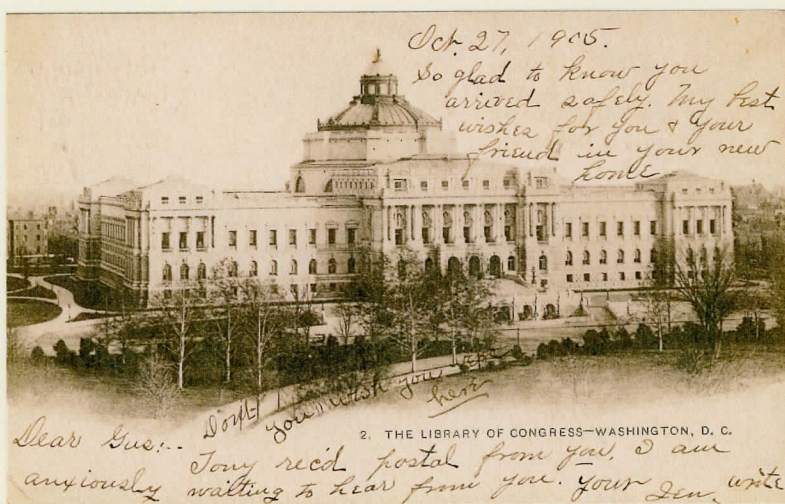 Oct. 27, 1905.
So glad to know you
arrived safely. My best
wishes for you & your
friend in your new
home
Don't you wish you were
here
2. THE LIBRARY OF CONGRESS—WASHINGTON, D. C.
Dear Gus:..
Tony rec'd postal from you, I am
anxiously waiting to hear from you. Your
write